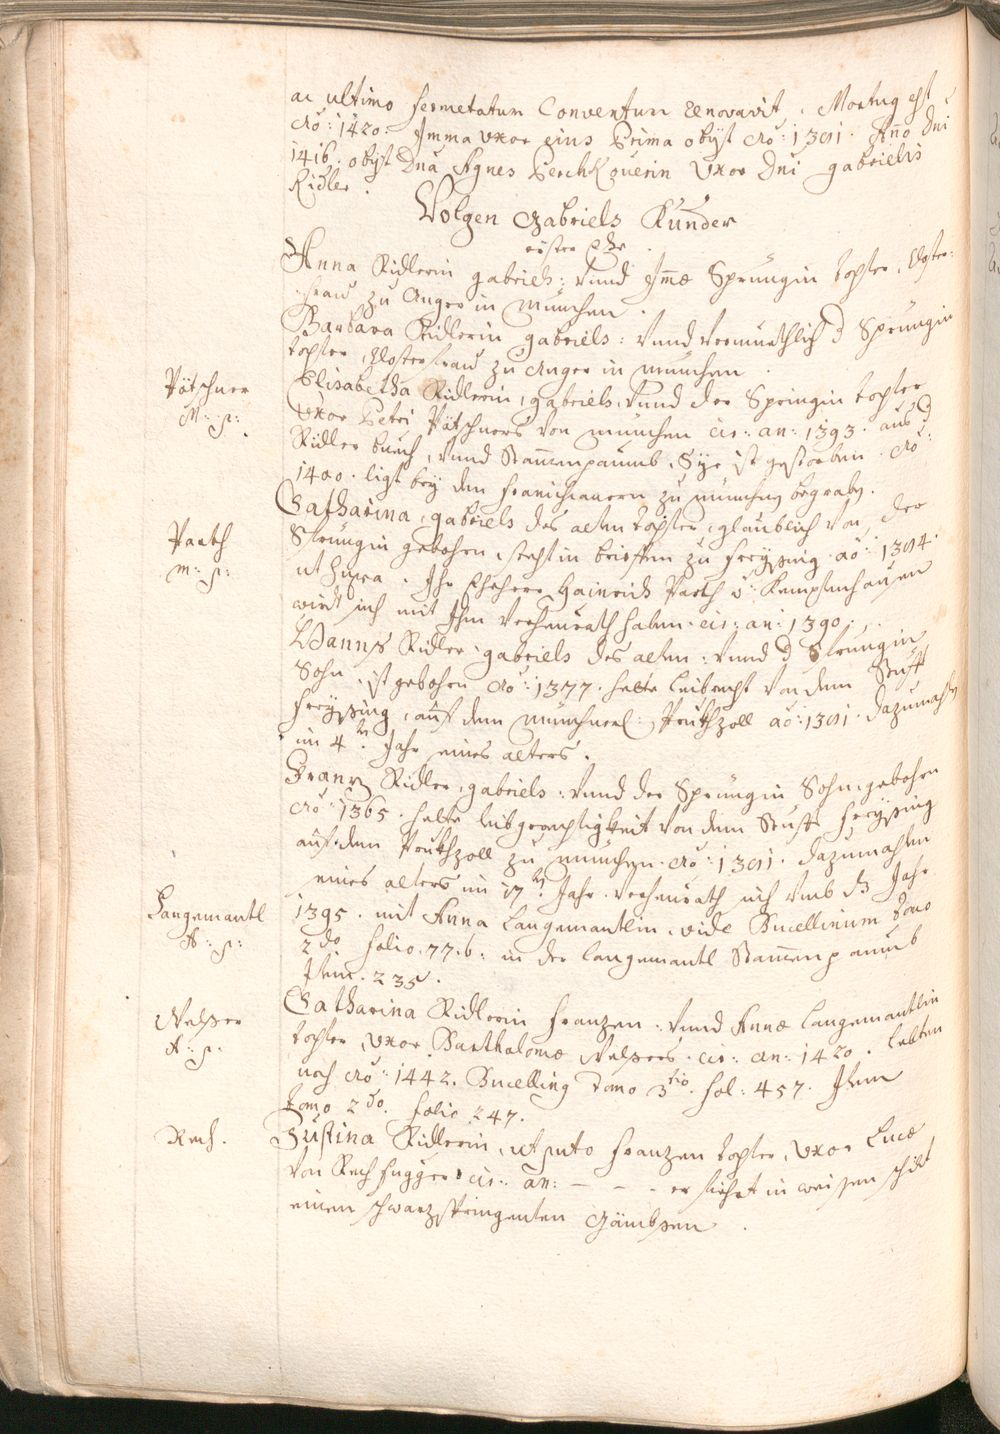 ac ultimo hermetatum Conventum renovavit. Mortuus est
Aõ: 1420. Imma uxor eius Prima obÿt Aõ: 1391. Año Dni
1416. obÿt Dña Agnes PerchKoverin Uxor Dni gabrielis
Ridler.
Volgen Gabriels Kunder
erster Ehe.
Anna Ridlerin gabriels: Vnnd Immæ Sprungin tochter, Closter:
frau zu Anger in München.
Barbara Ridlerin gabriels: Vnnd vermuethlich d Sprungin
tochter, Closterfrau zu Anger in München.
Pötschner
M: p:
Elisabetha Ridlerin, gabriels, Vnnd der Springin tochter
Uxor Petri Pötschners von München cir: an: 1393. aus d
Ridler buech, Vnnd Stammenpaumb, Sye ist gestorben Aõ:
1400. ligt beÿ den Franciscanern zu München begraben.
Catharina, gabriels des alten tochter, glaublich von der
Parth
m: p:
Sprungin gebohren, steht in brieffen zu Freÿsing aõ: 1394.
ut supra. Ihr Eheherr Hainrich Parth v: Kempfenhausen
wirdt sich mit Ihm verheurath haben cir: an: 1390.
Hanns Ridler gabriels des alten: Vnnd d Sprungin
Sohn, ist gebohren Aõ: 1377. hatte leibrecht von dem Stufft
Freÿsing, auf dem Münchnerl: Pruthzoll aõ: 1391. dazumahlen
im 4. Jahr seines alters.
Franz Ridler, gabriels: Vnnd der Sprungin Sohn, gebohren
Aõ: 1365. hatte leibgerechtigkeit von dem Stufft Freÿsing
auf dem Pruthzoll zu München Aõ: 1391. dazumahlen
seines alters im 17. Jahr. verheurath sich vmb ds Jahr
Langemantl
A: p:
1395. mit Anna Langemantlin, vide Bucellinum tomo
2do folio. 77. b: in der Langemantl Stammenpaumb
Item. 235.
Welser
A: p:
Catharina Ridlerin Franzen: Vnnd Annæ Langemantlin
tochter, Uxor Bartholomæ Welsers. cir: an: 1420. lebten
noch Aõ: 1442. Bucelling tomo 3tio. fol: 457. Item
tomo 2do. folio 247.
Rech.
Justina Ridlerin, ut puto Franzen tochter, Uxor Lucæ
von Rech Fugger cir: an: — — — er fiehrt in weissen schilt
einen schwarz springenten Gämbsen.